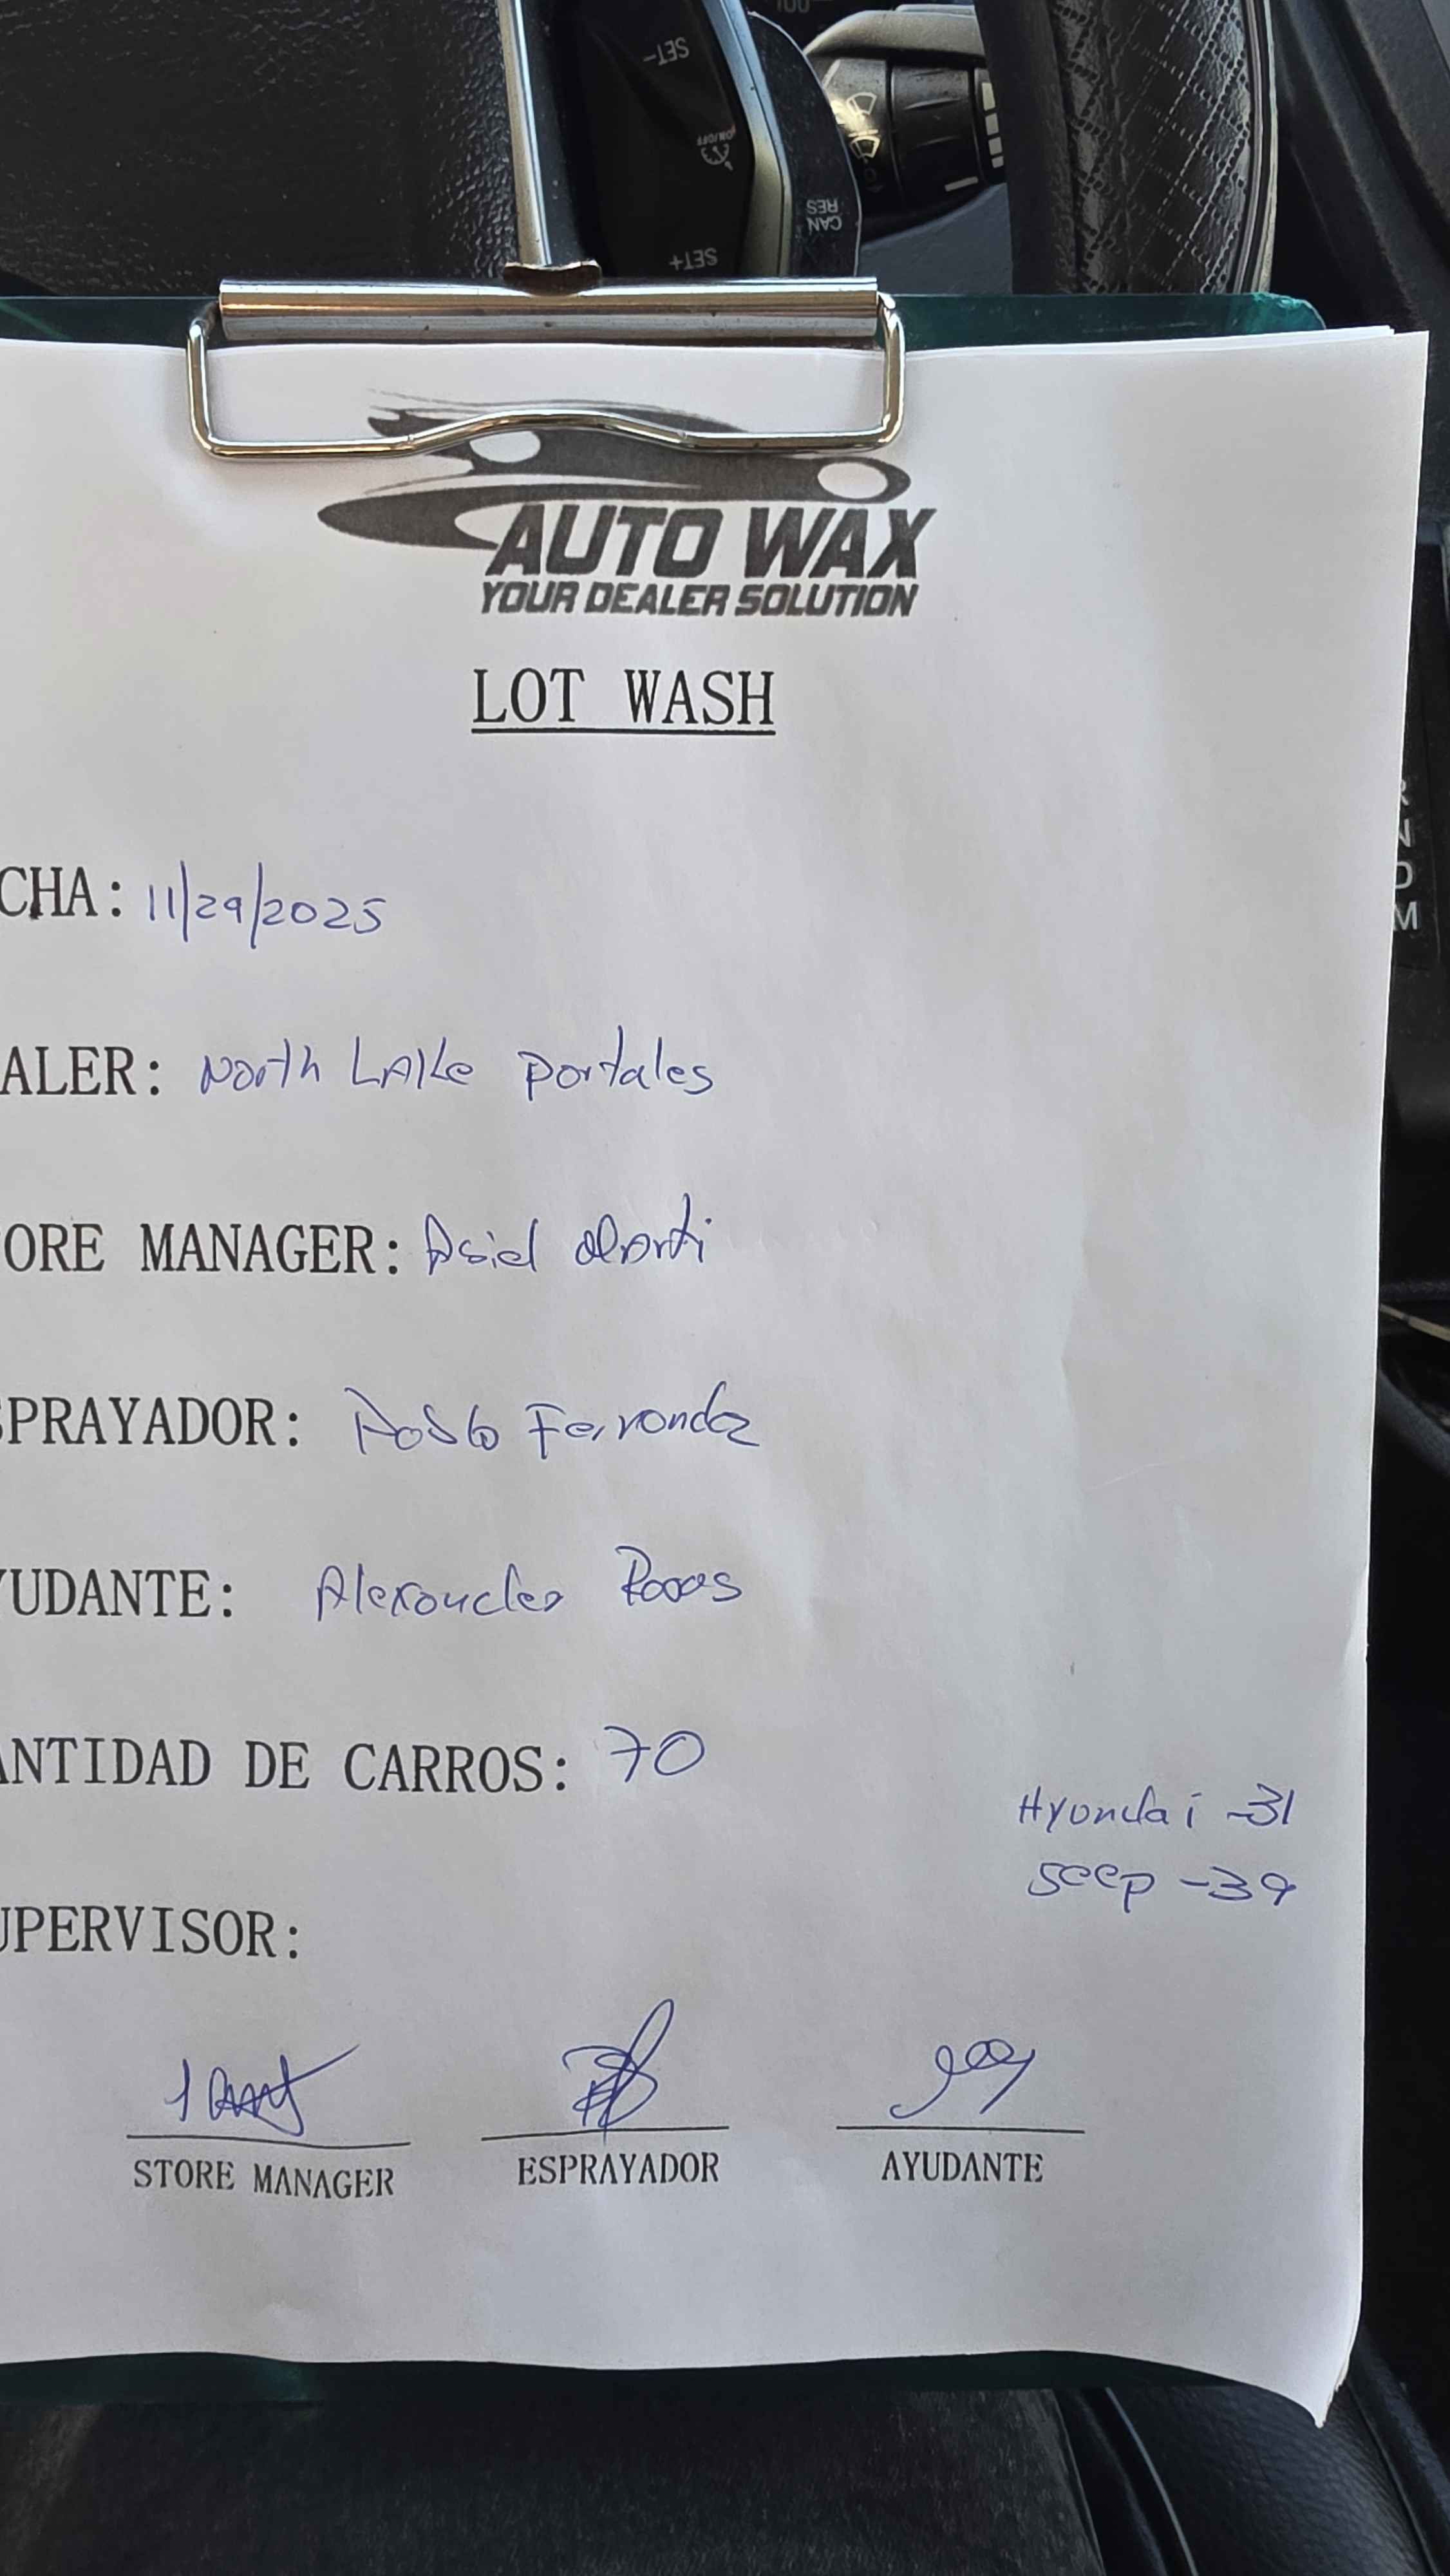 SET-
ON/OFF
CAN
RES
SET+
AUTO WAX
YOUR DEALER SOLUTION
LOT WASH
CHA: 11/29/2025
ALER: North LAKe portales
ORE MANAGER: Asiel Marti
SPRAYADOR: Fernandez
YUDANTE: Alexander Rosas
ANTIDAD DE CARROS: 70
Hyondai -31
Jeep -39
UPERVISOR:
STORE MANAGER
ESPRAYADOR
AYUDANTE
R
N
D
M